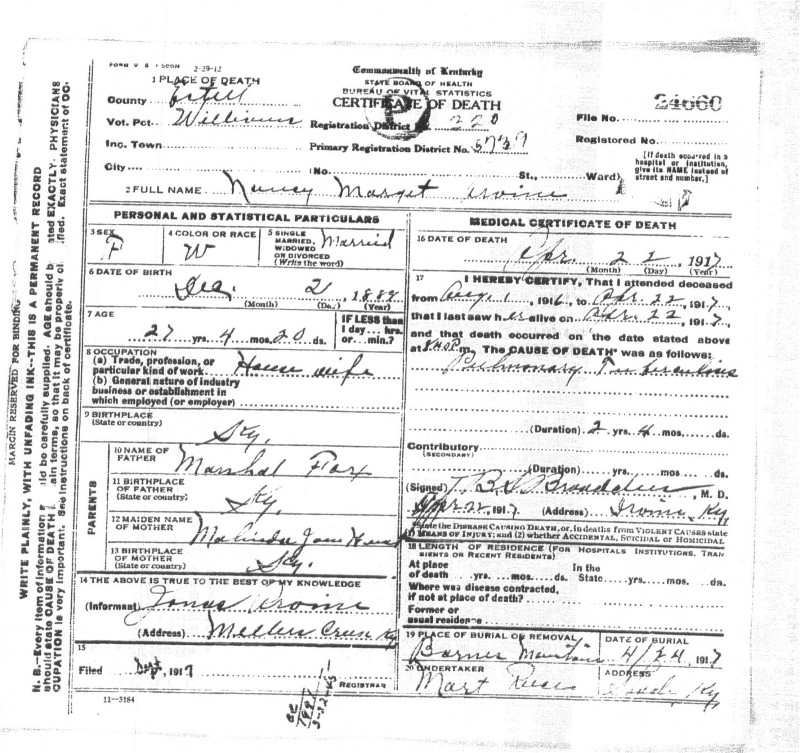 FORM V S 2-29-12
Commonwealth of Kentucky
STATE BOARD OF HEALTH
BUREAU OF VITAL STATISTICS
CERTIFICATE OF DEATH
P
1 PLACE OF DEATH
County Estill
Vot. Pct. Williams
Registration District 220
File No. 24660
Inc. Town
Primary Registration District No. 5739
Registered No.
City (No. St., Ward)
[If death occurred in a hospital or institution, give its NAME instead of street and number.]
2 FULL NAME Nancy Marget Irvine
PERSONAL AND STATISTICAL PARTICULARS
3 SEX F
4 COLOR OR RACE W
5 SINGLE MARRIED, WIDOWED OR DIVORCED (Write the word) Married
6 DATE OF BIRTH
Dec. 2, 1889
(Month) (Day) (Year)
7 AGE
27 yrs. 4 mos. 20 ds.
IF LESS than 1 day... hrs. or... min.?
8 OCCUPATION
(a) Trade, profession, or particular kind of work House wife
(b) General nature of industry business or establishment in which employed (or employer)
9 BIRTHPLACE
(State or country) Ky.
PARENTS
10 NAME OF FATHER Marshal Fox
11 BIRTHPLACE OF FATHER
(State or country) Ky.
12 MAIDEN NAME OF MOTHER Malinda Jane
13 BIRTHPLACE OF MOTHER
(State or country) Ky.
14 THE ABOVE IS TRUE TO THE BEST OF MY KNOWLEDGE
(Informant) Jonas Irvine
(Address) Millers Creek Ky
15
Filed Sept, 1917
REGISTRAR
11-3184
MEDICAL CERTIFICATE OF DEATH
16 DATE OF DEATH
Apr. 22 1917
(Month) (Day) (Year)
17 I HEREBY CERTIFY, That I attended deceased
from Aug. 1, 1916, to Apr. 22, 1917,
that I last saw her alive on Apr. 22, 1917,
and that death occurred on the date stated above
at m. The CAUSE OF DEATH was as follows:
Pulmonary Tuberculous
(Duration) 2 yrs. 4 mos. ds.
Contributory
(SECONDARY)
(Duration) yrs. mos. ds.
(Signed) M. D.
Apr 22 1917 (Address) Irvine, Ky.
State the DISEASE CAUSING DEATH, or, in deaths from VIOLENT CAUSES state
(1) MEANS OF INJURY; and (2) whether ACCIDENTAL, SUICIDAL or HOMICIDAL
18 LENGTH OF RESIDENCE (FOR HOSPITALS INSTITUTIONS, TRANSIENTS OR RECENT RESIDENTS)
At place of death yrs. mos. ds.
In the State yrs. mos. ds.
Where was disease contracted, if not at place of death?
Former or usual residence
19 PLACE OF BURIAL OR REMOVAL
Barnes Mountain
DATE OF BURIAL
4/24, 1917
20 UNDERTAKER
Mart
ADDRESS
Ky
MARGIN RESERVED FOR BINDING
WRITE PLAINLY, WITH UNFADING INK--THIS IS A PERMANENT RECORD
N. B.--Every item of information should be carefully supplied. AGE should be stated EXACTLY. PHYSICIANS
should state CAUSE OF DEATH in plain terms, so that it may be properly classified. Exact statement of OC-
CUPATION is very important. See instructions on back of certificate.